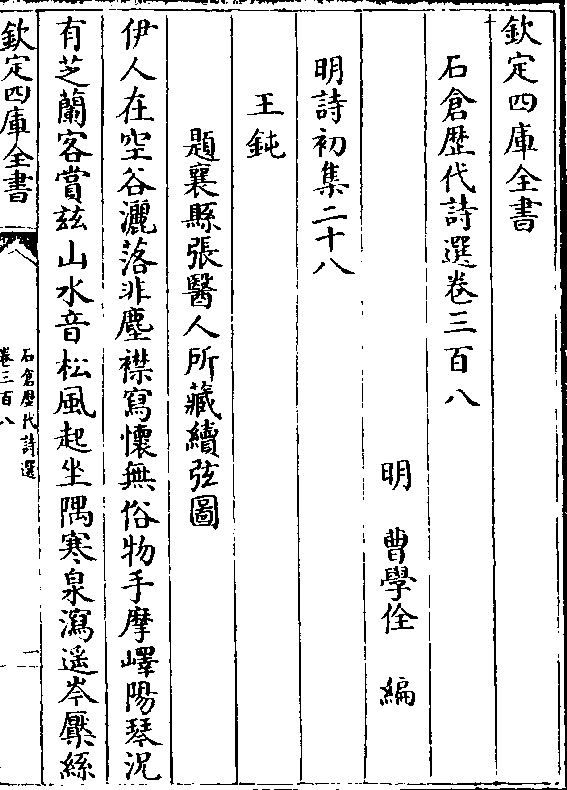 欽定四庫全書
石倉歴代詩選卷三百八
明 曹學佺 編
明詩初集二十八
王鈍
題襄縣張醫人所藏續弦圖
伊人在空谷灑落非塵襟寫懷無俗物手摩嶧陽琴況
有芝蘭客賞兹山水音松風起坐隅寒泉瀉遥岑檿絲
欽定四庫全書
石倉歴代詩選
卷三百八
一